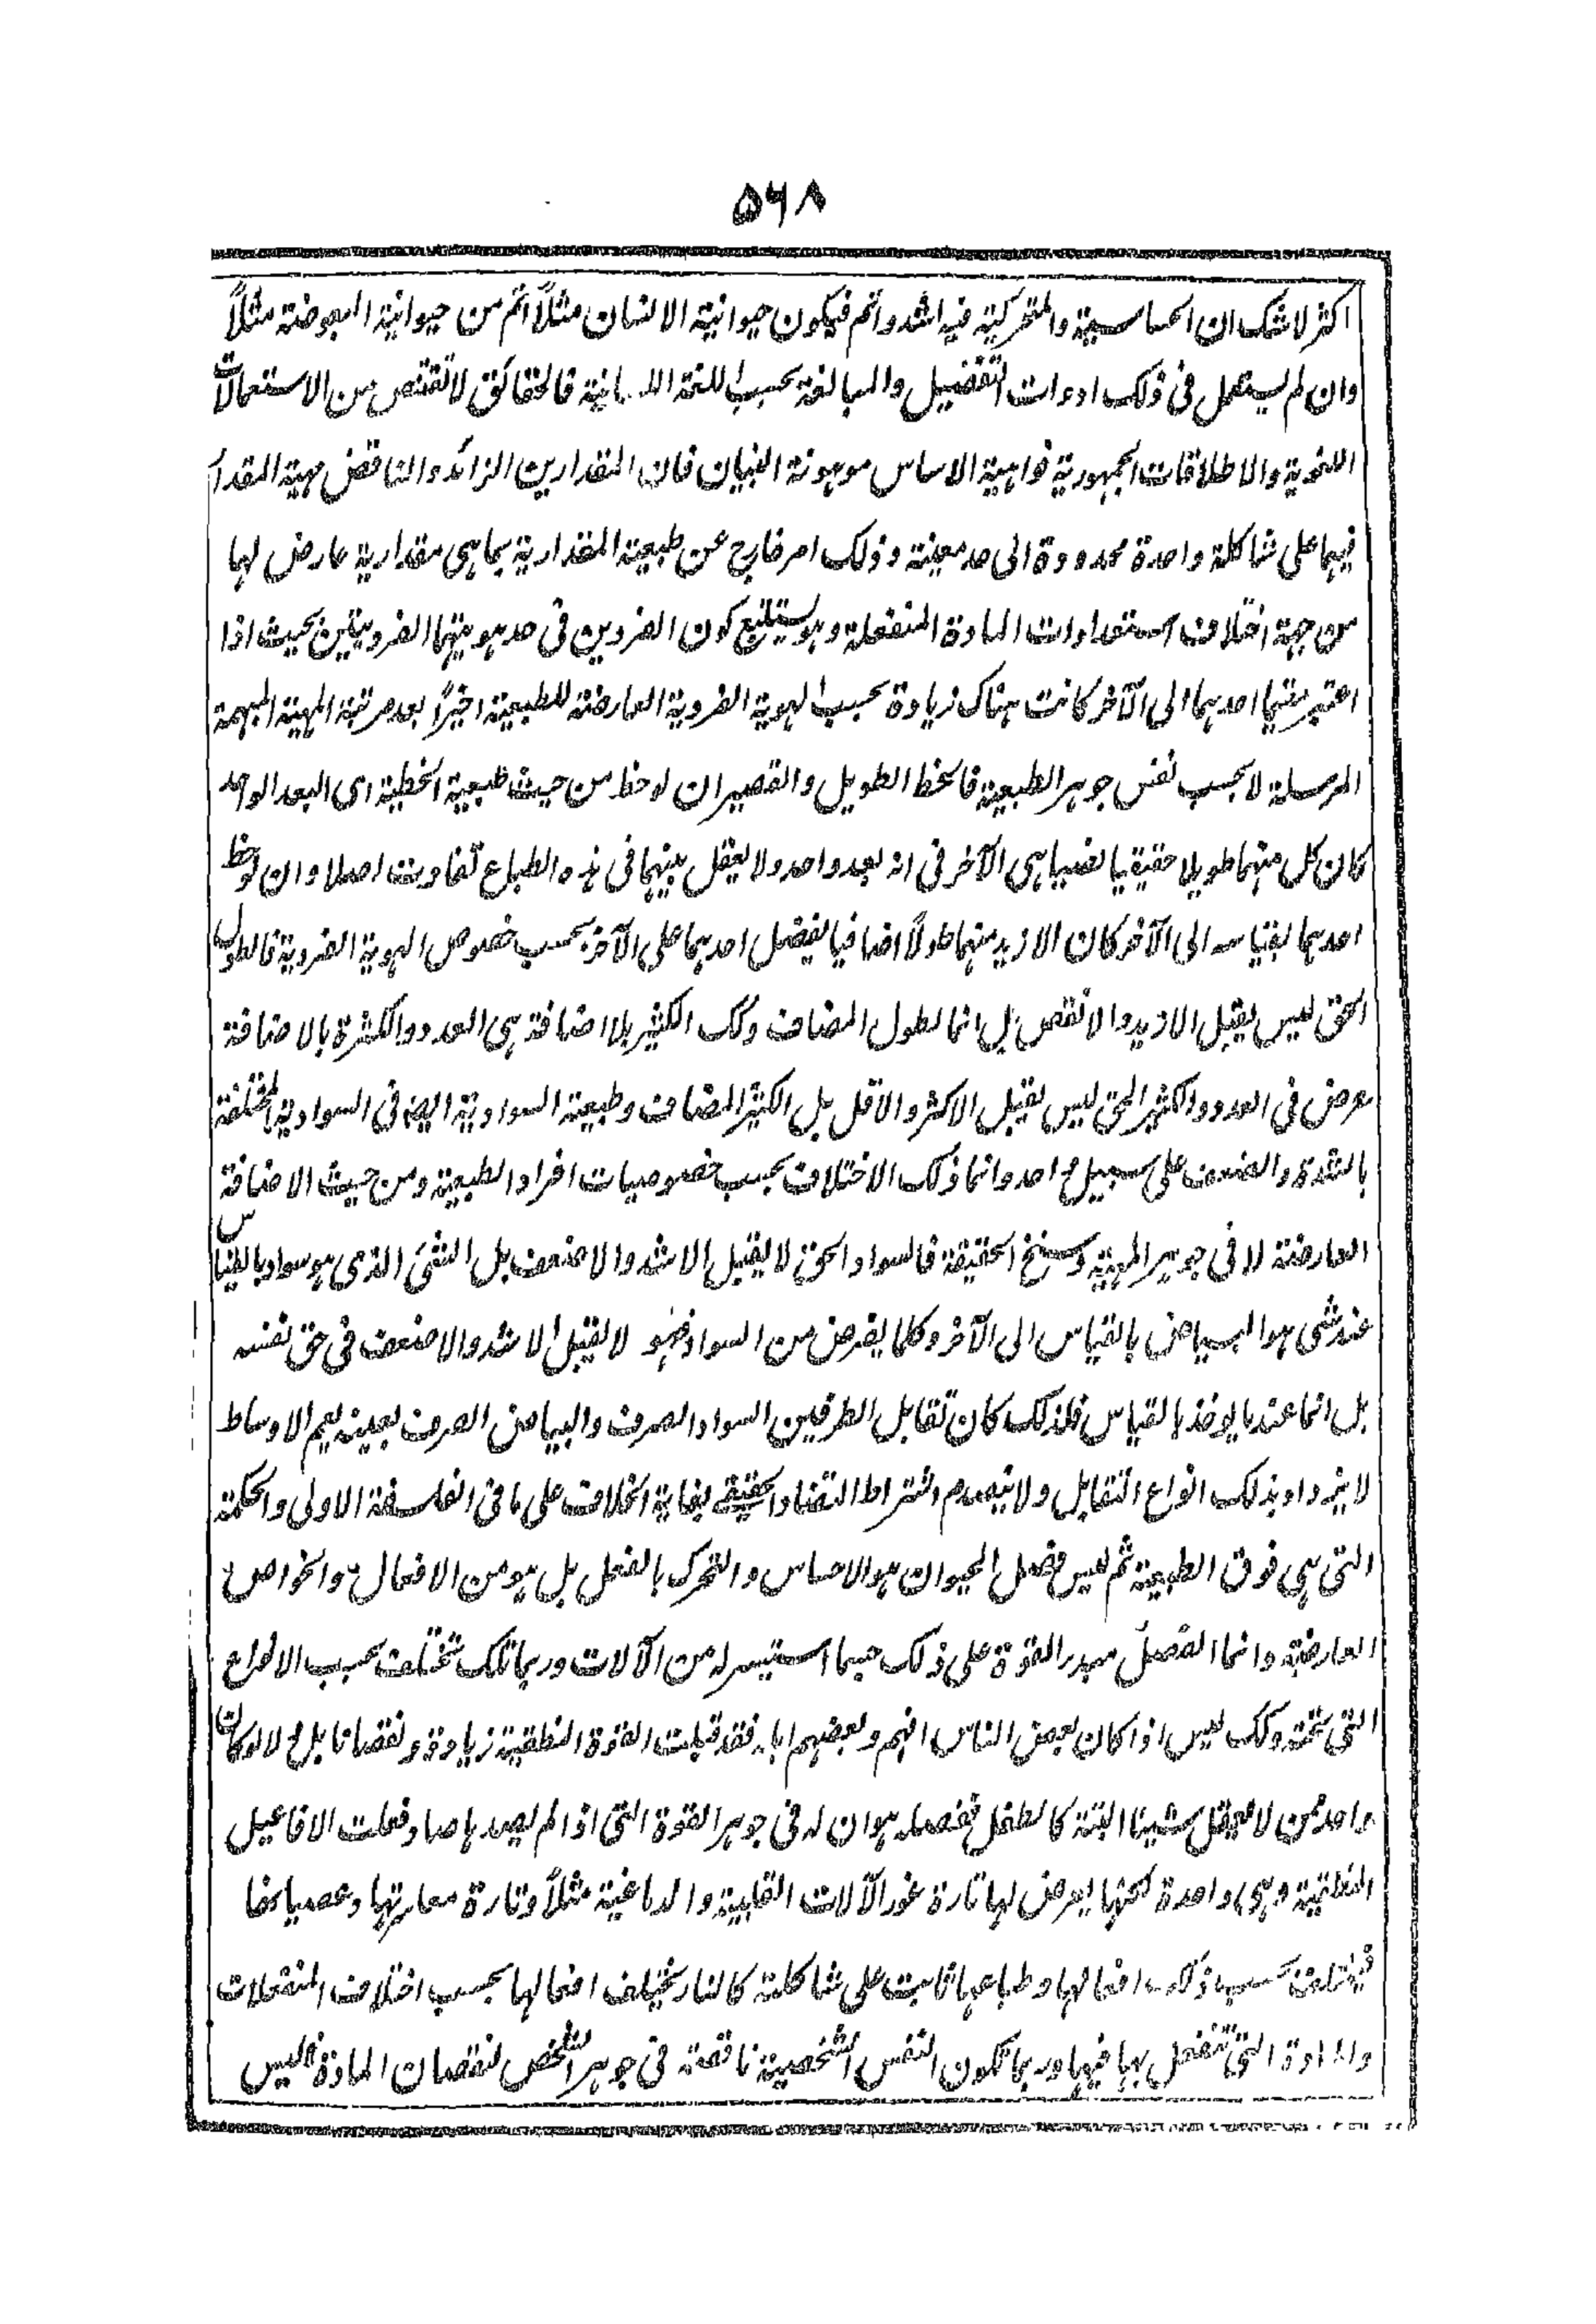 ۵۶۸
اکثر لا شک ان الحساسیة والمتحرکیة فیه اشد واتم فیکون حیوانیة الانسان مثلاً اتم من حیوانیة البعوضة مثلاً
وان لم یستعمل فی ذلک ادوات التفضیل والمبالغة بحسب اللغة فالحقائق لا تقتنص من الاستعمالات
اللغویة والاطلاقات الجمهوریة واهیة الاساس موهونة البنیان فان المقدارین الزائد والناقص مهیة المقدار
فیهما علی شاکلة واحدة محدودة الی حد معینة وذلک امر خارج عن طبیعة المقداریة بما هی مقداریة عارض لها
من جهة اختلاف استعدادات المادة المنفعلة وهو یستتبع کون الفردین فی حد هویتهما الفردیتین بحیث اذا
اعتبر مقیسا احدهما الی الآخر کانت هناک زیادة بحسب الهویة الفردیة العارضة للطبیعة اخیرًا بعد مرتبة المهیة المبهمة
المرسلة لا بحسب نفس جوهر الطبیعة فالخط الطویل والقصیر ان لوحظ من حیث طبیعة الخطیة ای البعد الواحد
کان کل منهما طویلا حقیقیا یضاهی الآخر فی انه بعد واحد ولا یعقل بینهما فی هذه الطباع تفاوت اصلا وان لوحظ
احدهما بقیاسه الی الآخر کان الازید منهما طولاً اضافیا یفضل احدهما علی الآخر بحسب خصوص الهویة الفردیة فالطول
الحق لیس یقبل الازید والانقص بل انما الطول المضاف وکک الکثیر بلا اضافة هی العدد والکثرة بالاضافة
عرض فی العدد والکثیر الحق لیس یقبل الاکثر والاقل بل الکثیر المضاف وطبیعة السوادیة ایضا فی السوادیة المختلفة
بالشدة والضعف علی سبیل واحد وانما ذلک الاختلاف بحسب خصوصیات افراد الطبیعة ومن حیث الاضافة
العارضة لا فی جوهر المهیة وسنخ الحقیقة فالسواد الحق لا یقبل الاشد والاضعف بل الشیٔ الذی هو سواد بالقیاس
عند شی هو البیاض بالقیاس الی الآخر وکلما یفرض من السواد فهو لا یقبل الاشد والاضعف فی حق نفسه
بل انما عند ما یوخذ بالقیاس فلذلک کان تقابل الطرفین السواد الصرف والبیاض الصرف بعینه یعم الاوساط
لا یزداد بذلک انواع التقابل ولا ینهدم اشتراط التضاد الحقیقی بغایة الخلاف علی ما فی الفلسفة الاولی والحکمة
التی هی فوق الطبیعة ثم لیس فصل الحیوان هو الاحساس والتحرک بالفعل بل هو من الافعال والخواص
العارضة وانما الفصل مبدء القوة علی ذلک حیثما استیسر له من الآلات وربما تلک تختلف بحسب الانواع
التی تحته وکک لیس اذا کان بعض الناس افهم وبعضهم ابله فقد قبلت القوة النطقیة زیادة ونقصانا بل ولا لو کان
واحد ممن لا یعقل شیئا البتة کالطفل ففصله هو ان له فی جوهر القوة التی اذا لم یصدها صاد فعلت الافاعیل
النطقیة وهی واحدة لکنها یعرض لها تارة عوز الآلات القلبیة والدماغیة مثلاً وتارة معاسرتها وعصیانها
فیختلف بحسب ذلک افعالها وطباعها ثابت علی شاکلة کالنار یختلف افعالها بحسب اختلاف المنفعلات
والمادة التی تنفعل بها فیها وربما تکون النفس الشخصیة ناقصة فی جوهر الشخص لنقصان المادة فلیس